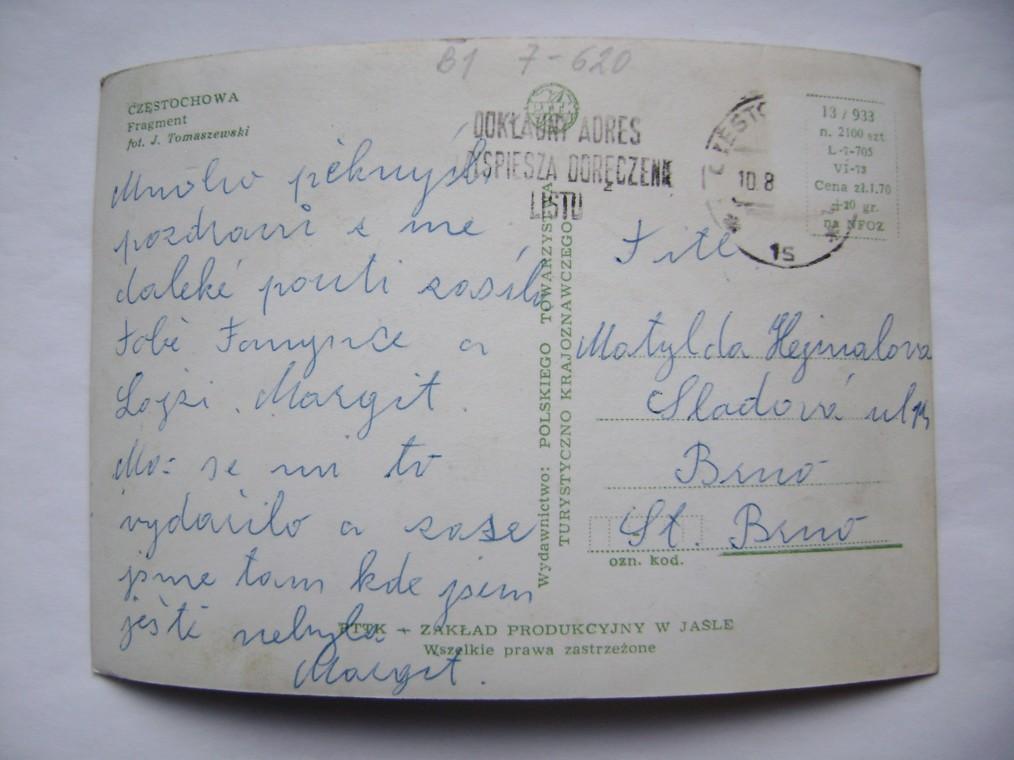 B1 7-620
CZĘSTOCHOWA
Fragment
fot. J. Tomaszewski
PTTK
DOKŁADNY ADRES
PRZYSPIESZA DORĘCZENIE
LISTU
10.8
15
13 / 933
n. 2100 szt
L-7-705
VI-73
Cena zł.1.70
+20 gr.
na NFOZ
Mnoho pěkných
pozdravů z me
daleké pouti zasílá
Tobě a
Margit.
se mi to
vydařilo a zase
jsme tam kde jsem
ještě nebyla
Margit.
Wydawnictwo: POLSKIEGO TOWARZYSTWA
TURYSTYCZNO KRAJOZNAWCZEGO
Matylda Hejmalova
Sladová ul
Brno
St. Brno
ozn. kod.
PTTK - ZAKŁAD PRODUKCYJNY W JAŚLE
Wszelkie prawa zastrzeżone